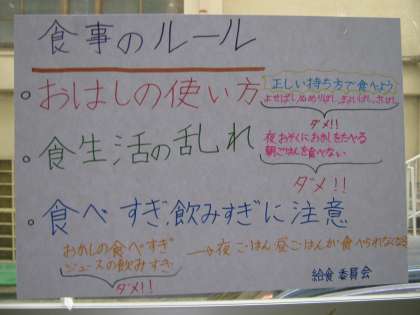 食事のルール
おはしの使い方
正しい持ち方で食べよう
よせばし、ぬめりばし、まよいばし、さしばし
ダメ!!
食生活の乱れ
夜おそくにおかしをたべる
朝ごはんを食べない
ダメ!!
食べすぎ、飲みすぎに注意
おかしの食べすぎ
ジュースの飲みすぎ
→夜ごはん昼ごはんが食べられなくなる
ダメ!!
給食委員会